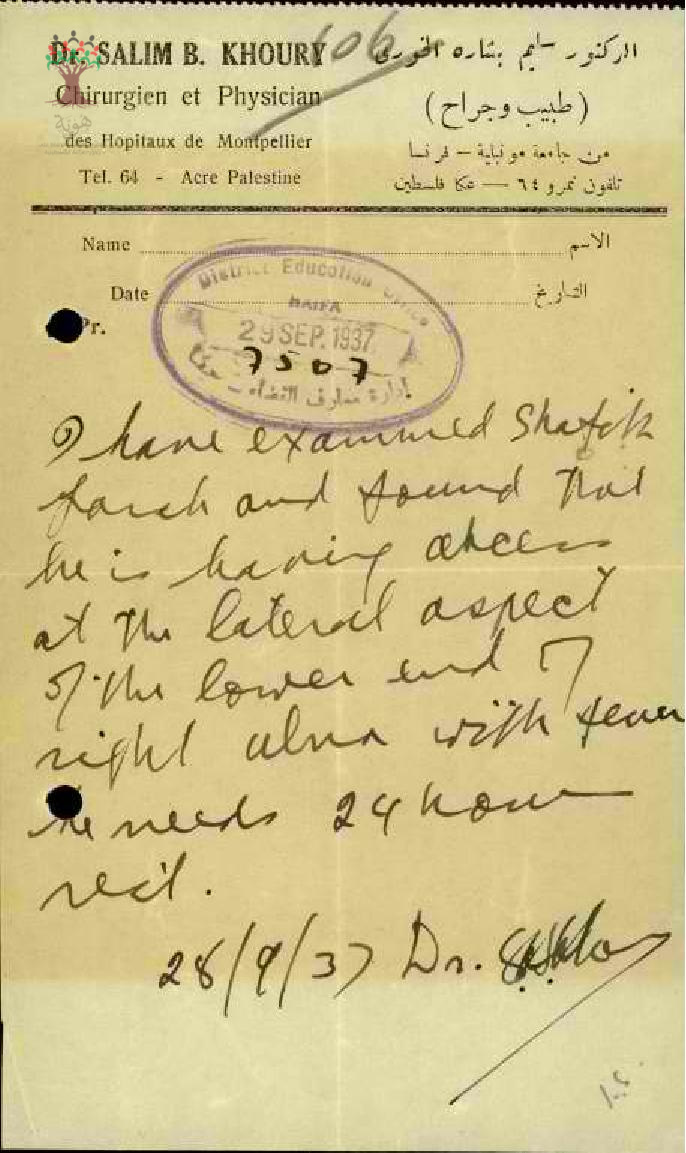 106
Dr. SALIM B. KHOURY
Chirurgien et Physician
des Hopitaux de Montpellier
Tel. 64 - Acre Palestine
الدكتور سليم بشاره الخوري
(طبيب وجراح)
من جامعة مونبلية - فرنسا
تلفون نمرو ٦٤ — عكا فلسطين
هوية
Name الاسم
Date التاريخ
Pr.
District Education Office
HAIFA
29 SEP. 1937
7507
إدارة معارف القضاء - حيفا
I have examined Shafik
Farah and found that
he is having abcess
at the lateral aspect
of the lower end of
right ulna with fever
he needs 24 hours
rest.
28/9/37 Dr.